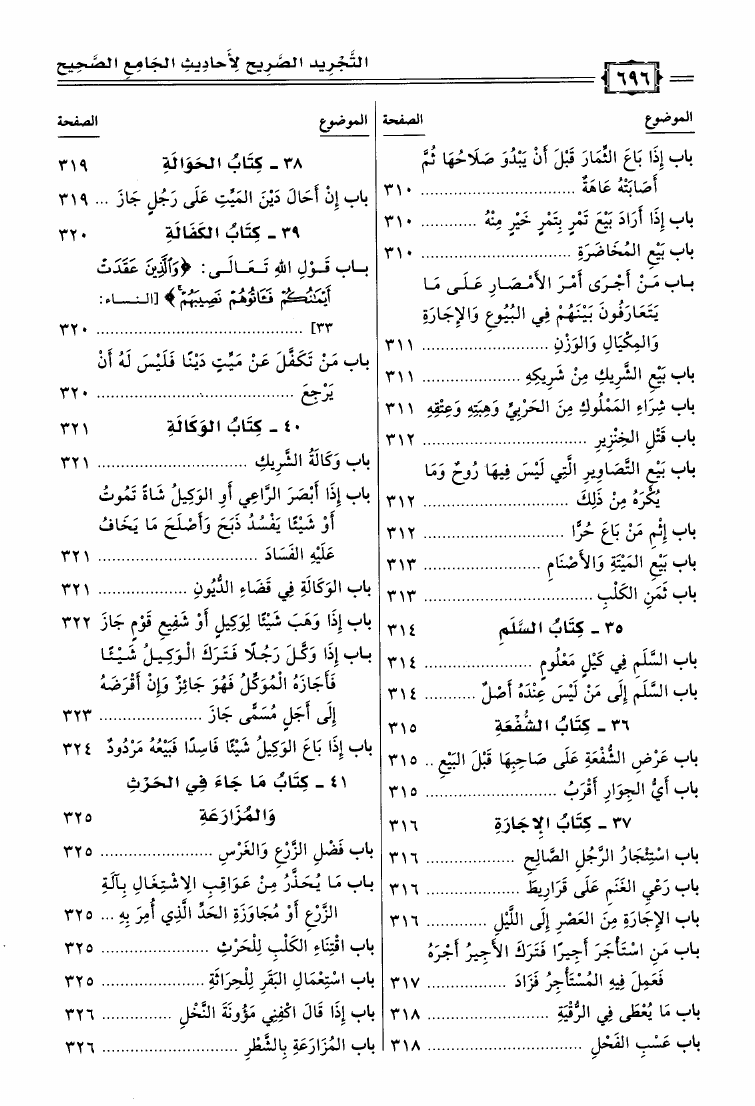 ٦٩٦
التَّجْرِيد الصَّرِيح لِأَحادِيثِ الجَامِعِ الصَّحِيح
الموضوع الصفحة
باب إِذَا بَاعَ الثِّمَارَ قَبْلَ أَنْ يَبْدُوَ صَلَاحُهَا ثُمَّ
أَصَابَتْهُ عَاهَةٌ ........................ ٣١٠
باب إِذَا أَرَادَ بَيْعَ تَمْرٍ بِتَمْرٍ خَيْرٍ مِنْهُ ........... ٣١٠
باب بَيْعِ المُخَاضَرَةِ ........................ ٣١٠
بـاب مَـنْ أَجْـرَى أَمْـرَ الأَمْـصَـارِ عَـلَـى مَـا
يَتَعَارَفُونَ بَيْنَهُمْ فِي البُيُوعِ وَالإِجَارَةِ
وَالمِكْيَالِ وَالوَزْنِ ........................ ٣١١
باب بَيْعِ الشَّرِيكِ مِنْ شَرِيكِهِ ........................ ٣١١
باب شِرَاءِ المَمْلُوكِ مِنَ الحَرْبِيِّ وَهِبَتِهِ وَعِتْقِهِ ٣١١
باب قَتْلِ الخِنْزِيرِ ........................ ٣١٢
باب بَيْعِ التَّصَاوِيرِ الَّتِي لَيْسَ فِيهَا رُوحٌ وَمَا
يُكْرَهُ مِنْ ذَلِكَ ........................ ٣١٢
باب إِثْمِ مَنْ بَاعَ حُرًّا ........................ ٣١٢
باب بَيْعِ المَيْتَةِ وَالأَصْنَامِ ........................ ٣١٣
باب ثَمَنِ الكَلْبِ ........................ ٣١٣
٣٥ ـ كِتَابُ السَّلَمِ ٣١٤
باب السَّلَمِ فِي كَيْلٍ مَعْلُومٍ ........................ ٣١٤
باب السَّلَمِ إِلَى مَنْ لَيْسَ عِنْدَهُ أَصْلٌ ........... ٣١٤
٣٦ ـ كِتَابُ الشُّفْعَةِ ٣١٥
باب عَرْضِ الشُّفْعَةِ عَلَى صَاحِبِهَا قَبْلَ البَيْعِ .. ٣١٥
باب أَيُّ الجِوَارِ أَقْرَبُ ........................ ٣١٥
٣٧ ـ كِتَابُ الإِجَارَةِ ٣١٦
باب اسْتِئْجَارُ الرَّجُلِ الصَّالِحِ ........................ ٣١٦
باب رَعْيِ الغَنَمِ عَلَى قَرَارِيطَ ........................ ٣١٦
باب الإِجَارَةِ مِنَ العَصْرِ إِلَى اللَّيْلِ ............. ٣١٦
باب مَنِ اسْتَأْجَرَ أَجِيرًا فَتَرَكَ الأَجِيرُ أَجْرَهُ
فَعَمِلَ فِيهِ المُسْتَأْجِرُ فَزَادَ ................ ٣١٧
باب مَا يُعْطَى فِي الرُّقْيَةِ ........................ ٣١٨
باب عَسْبِ الفَحْلِ ........................ ٣١٨
الموضوع الصفحة
٣٨ ـ كِتَابُ الحَوَالَةِ ٣١٩
باب إِنْ أَحَالَ دَيْنَ المَيِّتِ عَلَى رَجُلٍ جَازَ ... ٣١٩
٣٩ ـ كِتَابُ الكَفَالَةِ ٣٢٠
بـاب قَـوْلِ اللهِ تَـعَـالَـى: ﴿وَالَّذِينَ عَقَدَتْ
أَيْمَانُكُمْ فَآتُوهُمْ نَصِيبَهُمْ﴾ [الـنـساء:
٣٣] ........................ ٣٢٠
باب مَنْ تَكَفَّلَ عَنْ مَيِّتٍ دَيْنًا فَلَيْسَ لَهُ أَنْ
يَرْجِعَ ........................ ٣٢٠
٤٠ ـ كِتَابُ الوَكَالَةِ ٣٢١
باب وَكَالَةُ الشَّرِيكِ ........................ ٣٢١
باب إِذَا أَبْصَرَ الرَّاعِي أَوِ الوَكِيلُ شَاةً تَمُوتُ
أَوْ شَيْئًا يَفْسُدُ ذَبَحَ وَأَصْلَحَ مَا يَخَافُ
عَلَيْهِ الفَسَادَ ........................ ٣٢١
باب الوَكَالَةِ فِي قَضَاءِ الدُّيُونِ ................ ٣٢١
باب إِذَا وَهَبَ شَيْئًا لِوَكِيلٍ أَوْ شَفِيعِ قَوْمٍ جَازَ ٣٢٢
بـاب إِذَا وَكَّـلَ رَجُـلًا فَـتَـرَكَ الْـوَكِـيـلُ شَـيْـئًـا
فَأَجَازَهُ الْمُوَكِّلُ فَهُوَ جَائِزٌ وَإِنْ أَقْرَضَهُ
إِلَى أَجَلٍ مُسَمًّى جَازَ ................ ٣٢٣
باب إِذَا بَاعَ الوَكِيلُ شَيْئًا فَاسِدًا فَبَيْعُهُ مَرْدُودٌ ٣٢٤
٤١ ـ كِتَابُ مَا جَاءَ فِي الحَرْثِ
وَالمُزَارَعَةِ ٣٢٥
باب فَضْلِ الزَّرْعِ وَالغَرْسِ ........................ ٣٢٥
باب مَا يُحَذَّرُ مِنْ عَوَاقِبِ الاِشْتِغَالِ بِآلَةِ
الزَّرْعِ أَوْ مُجَاوَزَةِ الحَدِّ الَّذِي أُمِرَ بِهِ ... ٣٢٥
باب اقْتِنَاءِ الكَلْبِ لِلْحَرْثِ ........................ ٣٢٥
باب اسْتِعْمَالِ البَقَرِ لِلْحِرَاثَةِ ........................ ٣٢٥
باب إِذَا قَالَ اكْفِنِي مَؤُونَةَ النَّخْلِ ............. ٣٢٦
باب المُزَارَعَةِ بِالشَّطْرِ ........................ ٣٢٦